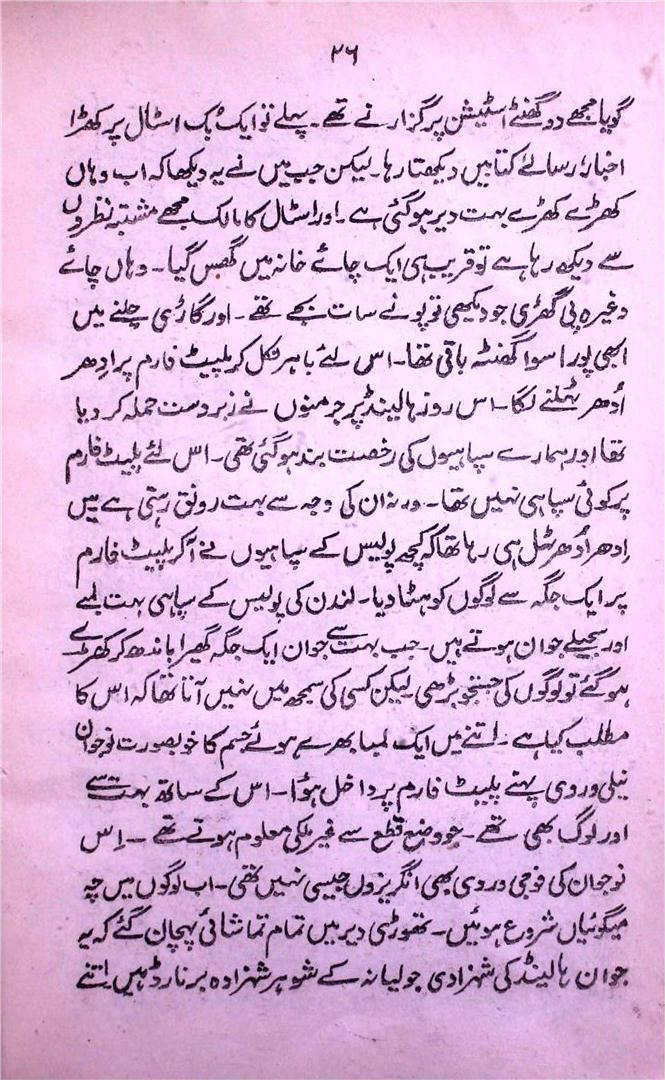 ۲۶
گویا مجھے دو گھنٹے اسٹیشن پر گزارنے تھے۔ پہلے تو ایک بُک اسٹال پر کھڑا
اخبار، رسالے کتابیں دیکھتا رہا۔ لیکن جب میں نے یہ دیکھا کہ اب وہاں
کھڑے کھڑے بہت دیر ہو گئی ہے۔ اور اسٹال کا مالک مجھے مشتبہ نظروں
سے دیکھ رہا ہے تو قریب ہی ایک چائے خانہ میں گھس گیا۔ وہاں چائے
وغیرہ پی گھڑی جو دیکھی تو پونے سات بجے تھے۔ اور گاڑی چلنے میں
ابھی پورا سوا گھنٹہ باقی تھا۔ اس لئے باہر نکل کر پلیٹ فارم پر اِدھر
اُدھر ٹہلنے لگا۔ اس روز ہالینڈ پر جرمنوں نے زبردست حملہ کر دیا
تھا اور ہمارے سپاہیوں کی رخصت بند ہو گئی تھی۔ اس لئے پلیٹ فارم
پر کوئی سپاہی نہیں تھا۔ ورنہ ان کی وجہ سے بہت رونق رہتی ہے میں
اِدھر اُدھر ٹہل ہی رہا تھا کہ کچھ پولیس کے سپاہیوں نے آکر پلیٹ فارم
پر ایک جگہ سے لوگوں کو ہٹا دیا۔ لندن کی پولیس کے سپاہی بہت لمبے
اور سجیلے جوان ہوتے ہیں۔ جب بہت سے جوان ایک جگہ گھیرا باندھ کر کھڑے
ہو گئے تو لوگوں کی جستجو بڑھی۔ لیکن کسی کی سمجھ میں نہیں آتا تھا کہ اس کا
مطلب کیا ہے۔ اتنے میں ایک لمبا بھرے ہوئے جسم کا خوبصورت نوجوان
نیلی وردی پہنے پلیٹ فارم پر داخل ہوُا۔ اس کے ساتھ بہت سے
اور لوگ بھی تھے۔ جو وضع قطع سے غیر ملکی معلوم ہوتے تھے۔ اِس
نوجوان کی فوجی وردی بھی انگریزوں جیسی نہیں تھی۔ اب لوگوں میں چہ
میگوئیاں شروع ہوئیں۔ تھوڑی دیر میں تمام تماشائی پہچان گئے کہ یہ
جوان ہالینڈ کی شہزادی جولیانہ کے شوہر شہزادہ برنارڈ ہیں اتنے